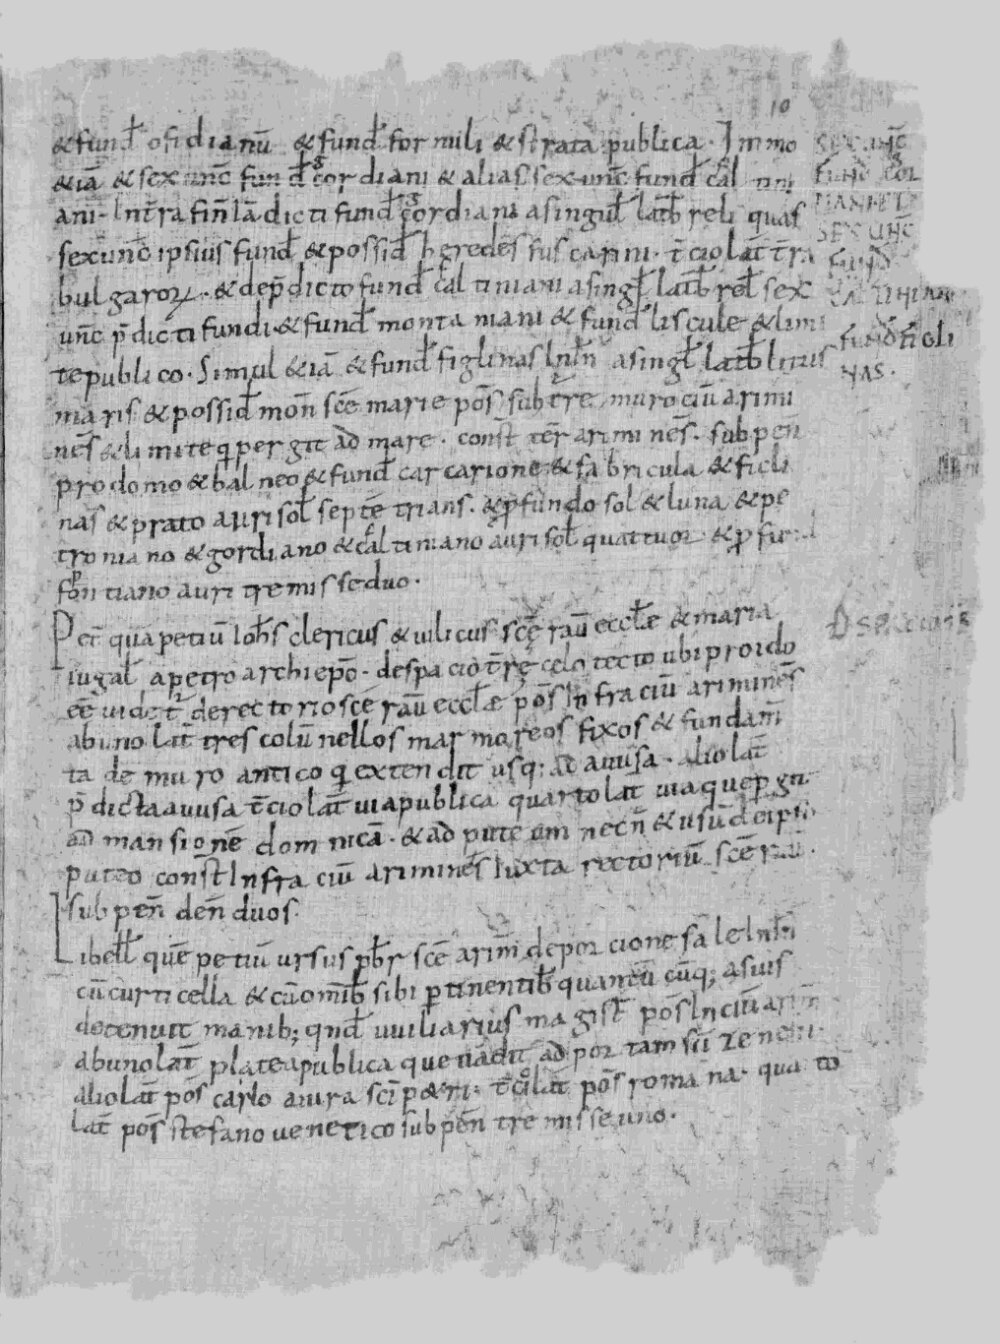 10
& fund̄ ofidianū & fund̄ formili & strata publica. Immo
& iā & sex unc̄ fund̄ gordiani & alias sex unc̄ fund̄ cal
ani. Int̄ra fin̄ Iā dicti fund̄ gordiani a singul̄ lat̄b reli quas
sex unc̄ ipsius fund̄ & possid̄ heredes fuscarini. t̄cio lat̄ t̄ra
bulgaroꝝ. & dep̄dicto fund̄ caltiniani a singl̄ lat̄b rel̄ sex
unc̄ p̄dicti fundi. & fund̄ montaniani & fund̄ liscule & limi
te publico. Simul & iā & fund̄ figlinas In a singl̄ lat̄b litus
maris & possid̄ mon̄ sc̄e marie pos̄ sub t̄re muro ciū arimi
nes̄ & limite q̄ pergit ad mare. const̄ ter̄ arimines̄. sub pen̄
pro domo & balneo & fund̄ carcarione & fabricula & ficli
nas & prato auri sol̄ septē trians. & ꝓ fundo sol & luna & pe
troniano & gordiano & caltiniano auri sol̄ quattuor & ꝓ fund
fontiano auri tremisse duo.
Pet̄ quā petiū Ioh̄s clericus & uilicus sc̄ę rau̅ eccl̄e & maria
iugal̄ a petro archiepō. de spacio t̄rę celo tecto ubi proido
eē uidet̄ de rectorio sc̄e rau̅ eccl̄æ pos̄ Infra ciū arimines̄
ab uno lat̄ tres colūnellos marmoreos fixos & fundam̄
ta de muro antico q̄ extendit usq; ad auusa. alio lat̄
p̄dicta auusa t̄cio lat̄ uia publica quarto lat̄ uia que ꝑgit
ad mansionē domnicā. & ad puteum necn̄ & usū de ipso
puteo const̄ Infra ciū arimines̄ Iuxta rectoriū sc̄e rau̅.
sub pen̄ den̄ duos.
Libell̄ quē petiū ursus p̄br sc̄e arim̄ de porcione sale In
cū curticella & cū omīb sibi ꝑtinentib̄ quamcū cūq; a suis
detenuit manib; qn̄d uuiliarius magist̄ pos̄ In ciū arim̄
ab uno lat̄ platea publica que uādit ad portam sc̄i zenoni
alio lat̄ pos̄ carlo aurra sc̄i p&ri. t̄cio lat̄ pos̄ romana. quarto
lat̄ pos̄ stefano uenetico sub pen̄ tremisse uno.
SEX UNC̄
FUND̄ GOR
DIANI ET
SEX UNC̄
FUND̄
CALTINIANI
FUND̄ FICLI
NAS.